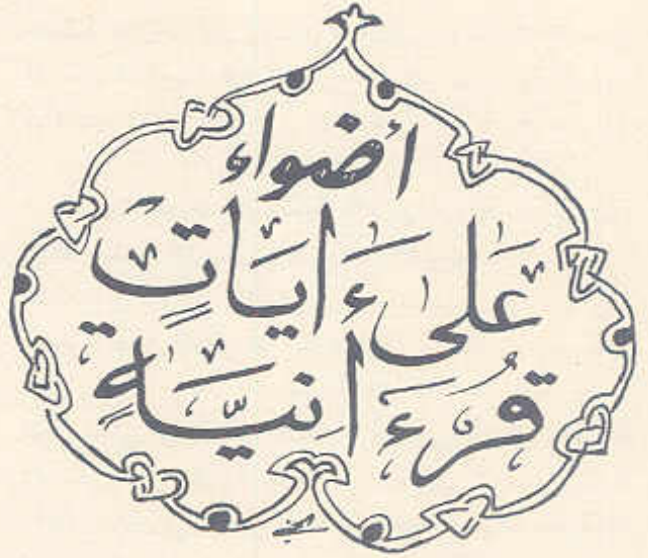 أضواء
عَلىٰ ءَايَاتٍ
قُرْءَانِيَّةٍ